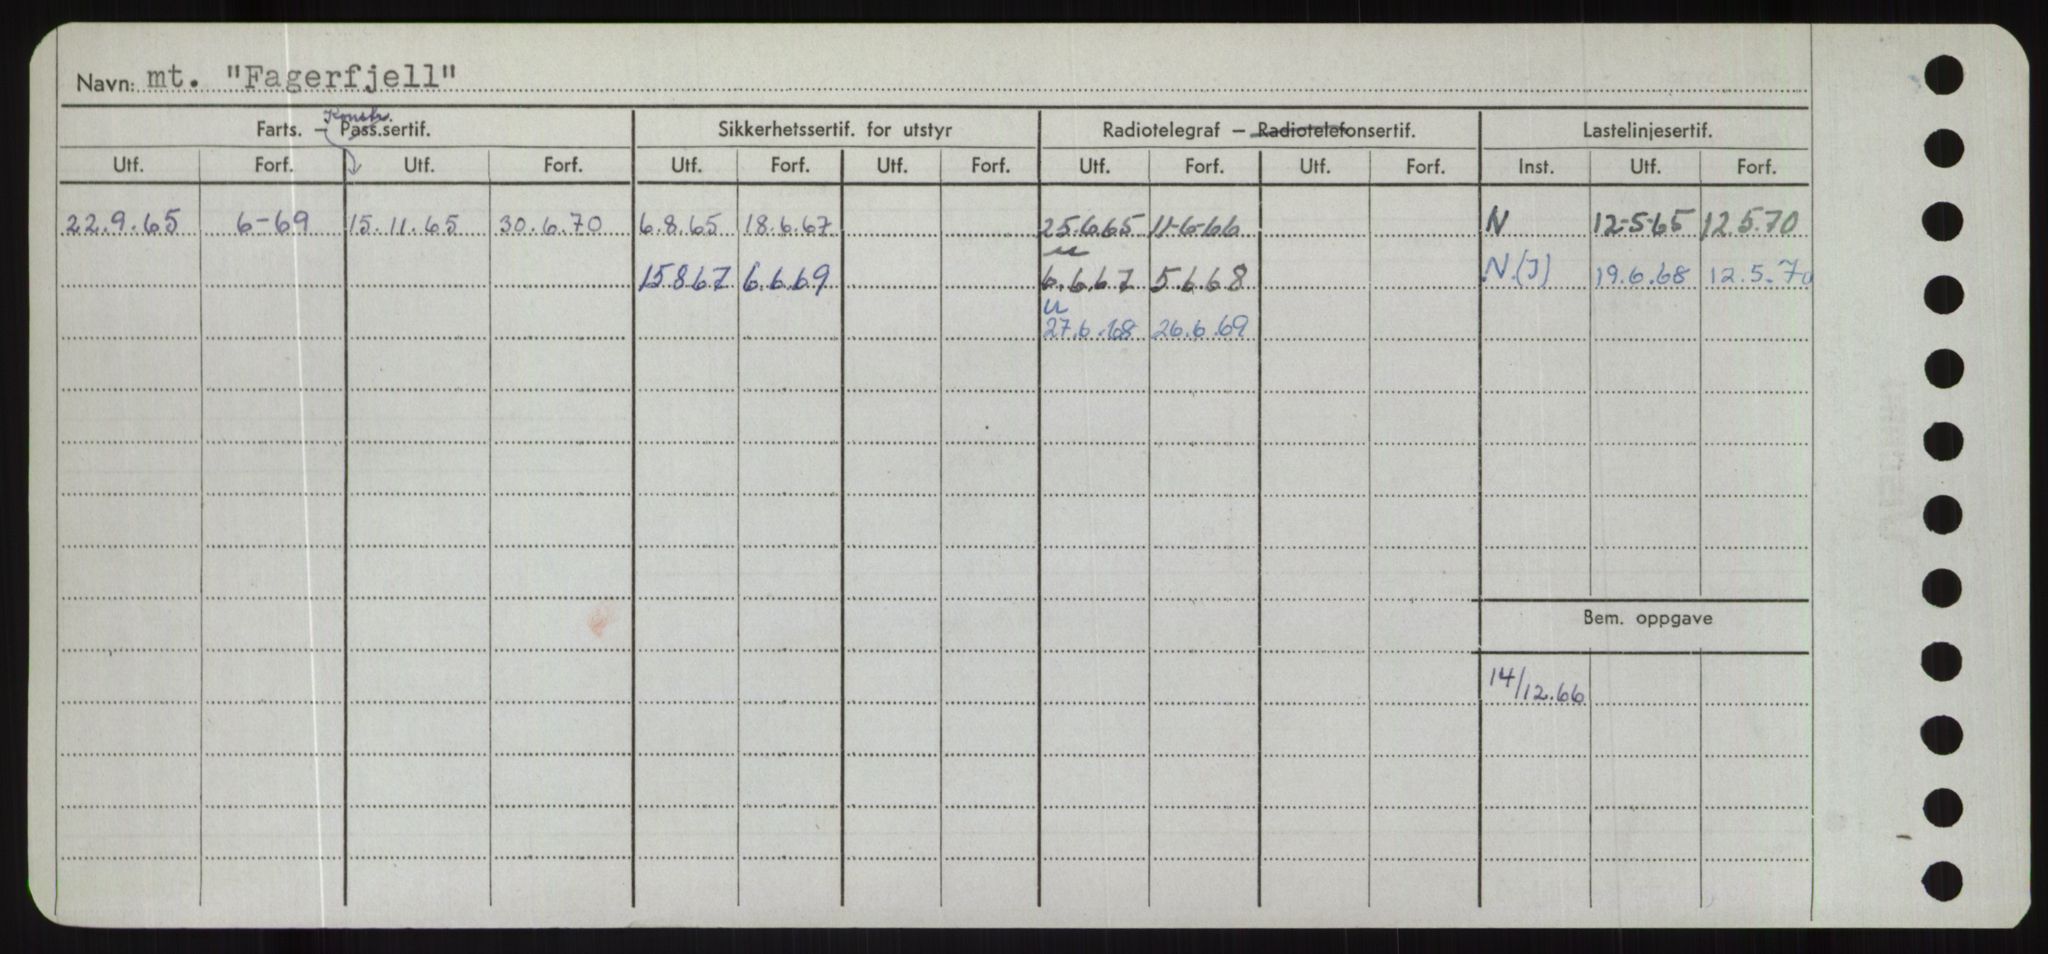 Navn: mt. "Fagerfjell"
Konstr.
Farts. — Pass.sertif. Sikkerhetssertif. for utstyr Radiotelegraf — Radiotelefonsertif. Lastelinjesertif.
Utf. Forf. Utf. Forf. Utf. Forf. Utf. Forf. Utf. Forf. Utf. Forf. Inst. Utf. Forf.
22.9.65 6-69 15.11.65 30.6.70 6.8.65 18.6.67 25.6.65 11-6-66 N 12-5-65 12.5.70
u
15.8.67 6.6.69 6.6.67 5.6.68 N.(J) 19.6.68 12.5.70
u
27.6.68 26.6.69
Bem. oppgave
14/12.66